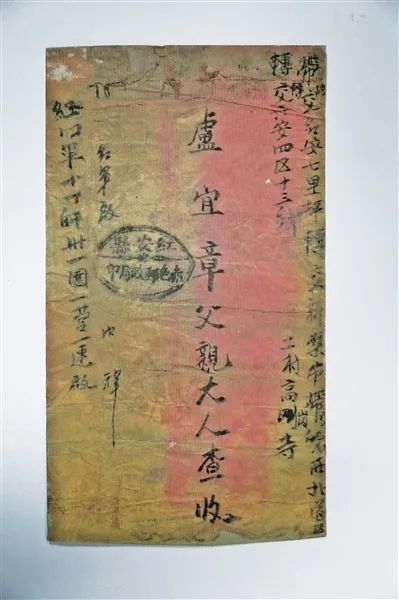 交紅安七里坪轉交
轉交六安四区十三
二村高寺
盧宜章父親大人查收
紅安縣
赤色郵政局印
紅軍啟
紅四軍十一師卅一團一營一連啟